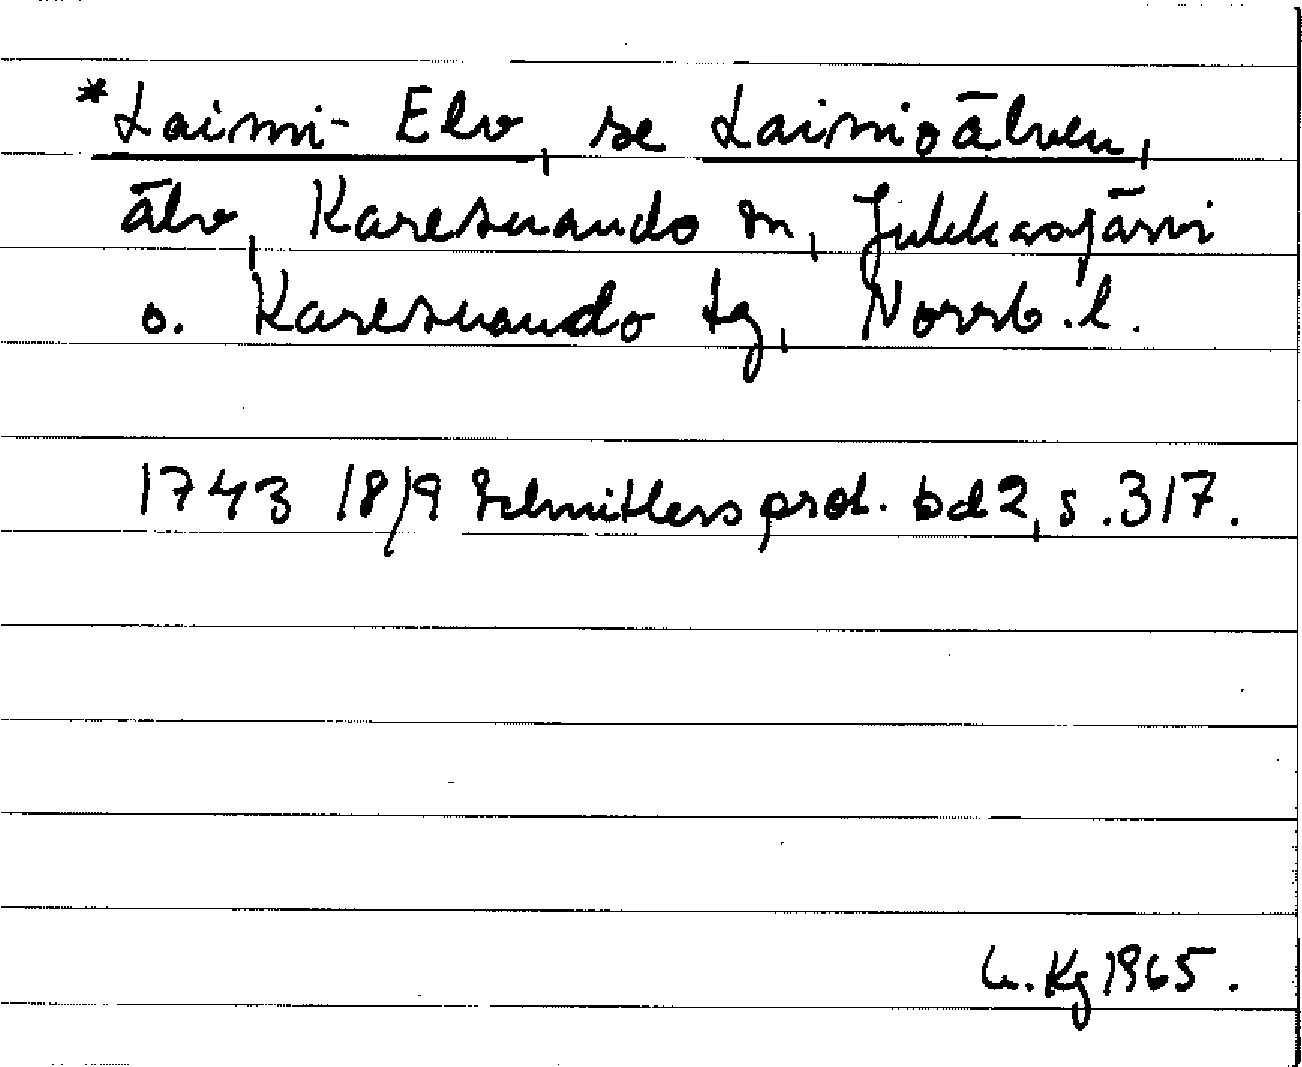 *Laimi- Elv, se Lainioälven,
älv, Karesuando sn, Jukkasjärvi
o. Karesuando tg, Norrb. l.
1743 18/9 Schnitlers prot. bd 2, s. 317.
Kg 1965.